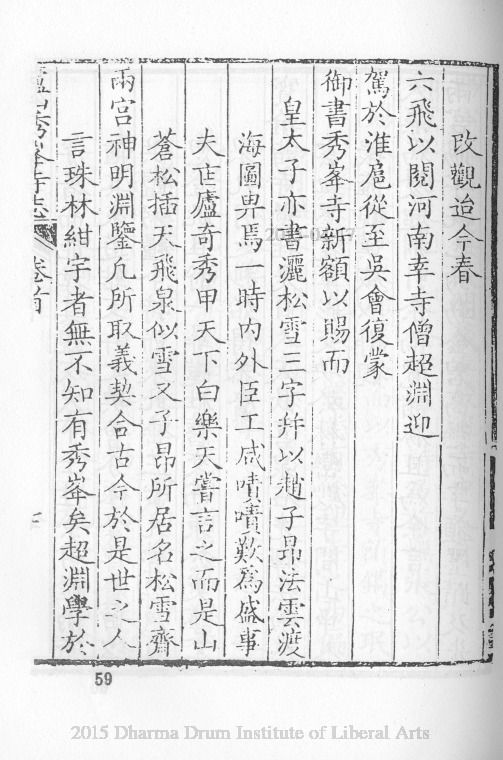 改觀迨今春
六飛以閱河南幸寺僧超淵迎
駕於淮扈從至吳會復蒙
御書秀峯寺新額以賜而
皇太子亦書灑松雪三字幷以趙子昂法雲渡
海圖畀焉一時内外臣工咸嘖嘖歎爲盛事
夫匡廬奇秀甲天下白樂天嘗言之而是山
蒼松插天飛泉似雪又子昂所居名松雪齊
兩宮神明淵鑒凢所取義契合古今於是世之人
言珠林紺宇者無不知有秀峯矣超淵學於
廬山秀峯寺志 卷首
59
2015 Dharma Drum Institute of Liberal Arts